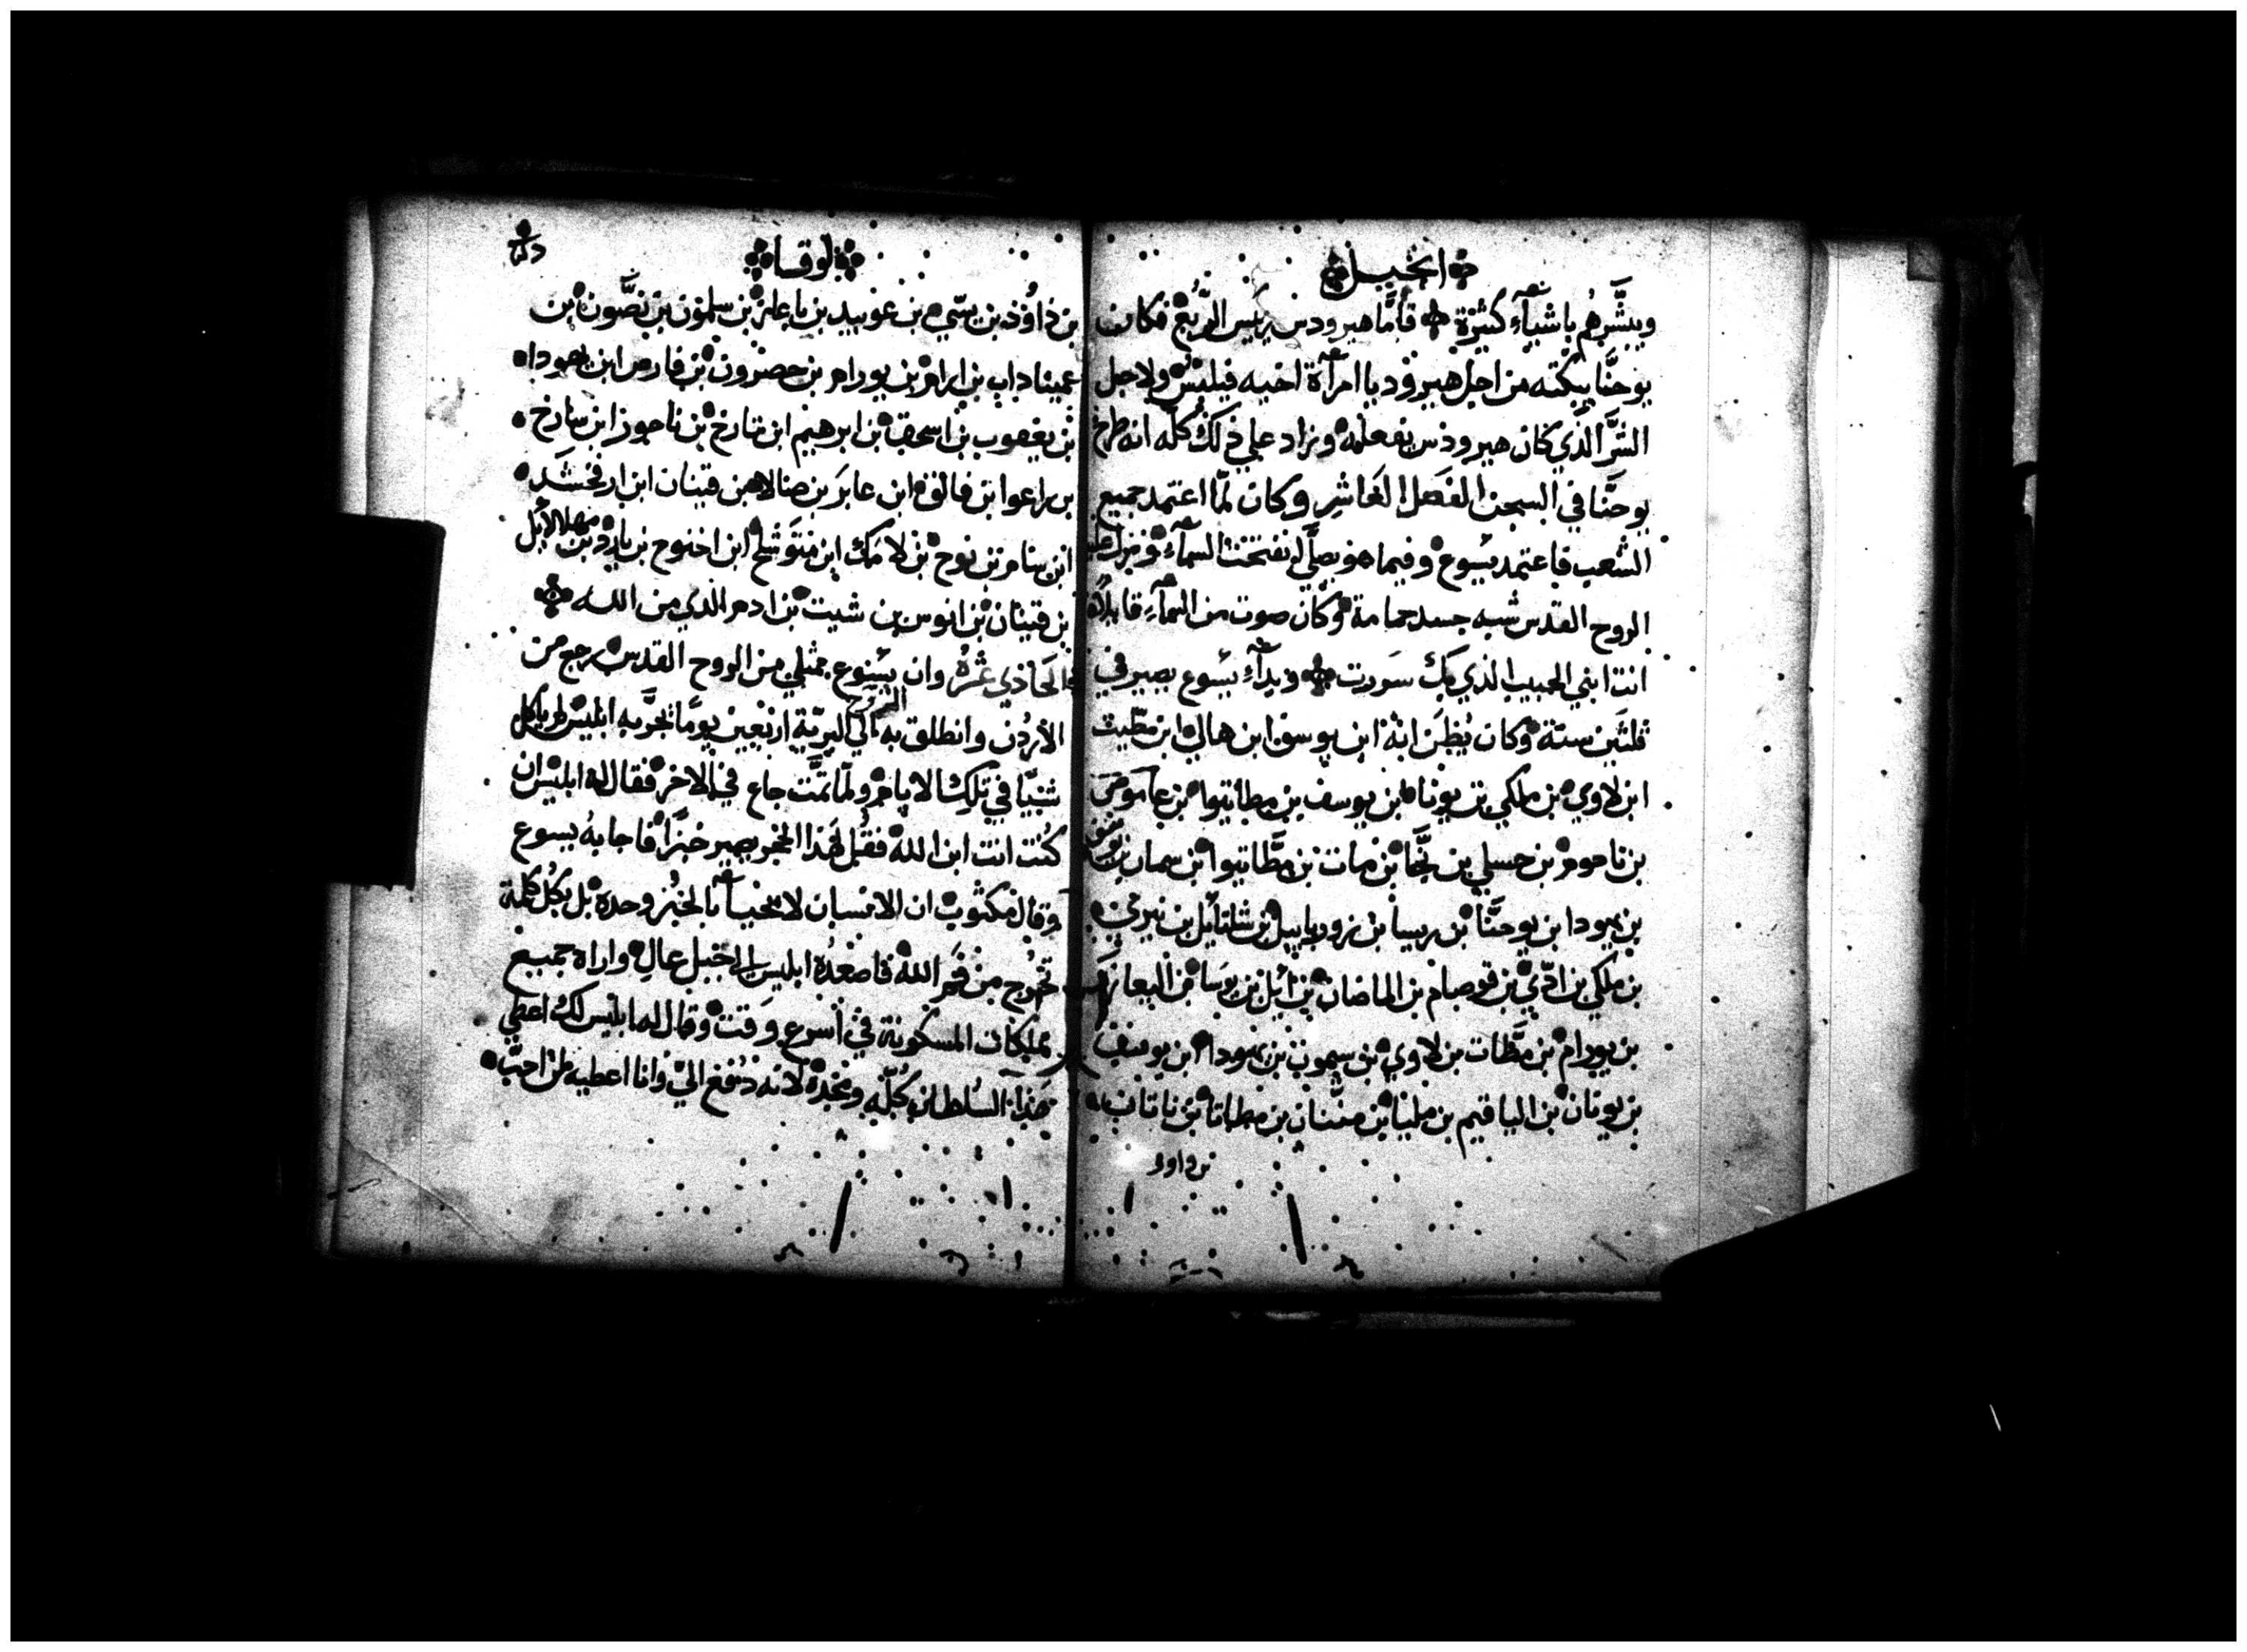 انجيل
ويبشّرهُم باشيآءِ كثيرة فأمَّا هيرودس رئيس الرُّبع فكان
يوحنَّا يبكّته من اجل هيروديا امرآة اخيه فيلبس ولاجل
الشرَّ الذي كان هيرودس يفعله وزاد علي ذلك كُلّه انه طرح
يوحنَّا في السجن الفصل العَاشِر وكان لمّا اعتمد جميع
الشعب فاعتمد يسوع وفيما هو يصلّي انفتحت السمآءِ ونزل عليه
الروح القدس شبه جسد حمامة وكان صوت من السمآءِ قايلاً
انت ابني الحبيب الذي بك سَررت وبدآءِ يسوع يصير في
ثلثين سنة وكان يُظن انهُ ابن يوسف ابن هالي ابن مطيث
ابن لاوي بن ملكي بن يونا بن يوسف بن مطاتيوا بن عاموص
بن ناحوم بن حسلي بن نجّا بن مات بن مطَّاتيوا بن سمار بن يوسف
بن يهودا بن يوحنَّا بن ريسا بن زوربابيل بن شلتائيل بن نيري
بن ملكي بن ادّي بن قوصام بن الماضان بن ائيل بن يوسا بن اليعازر
بن يورام بن مطَّات بن لاوي بن سمون بن يهودا بن يوسف
بن يونان بن الياقيم بن مليا بن مننان بن مطاتا بن ناتان
بن داود
لوقا
بن داوُد بن يسّي بن عوبيد بن باعاز بن سلمون بن نصَّون بن
عميناداب بن ارام بن يورام بن حصرون بن فارص ابن يهودا
بن يعقوب بن اسحق بن ابرهيم ابن تارخ بن ناحور ابن سارخ
بن راعوا بن فالق ابن عابر بن صالا بن قينان ابن ارفخشد
ابن سام بن نوح بن لامك ابن متوشلح ابن اخنوح بن يارد بن مهلالائيل
بن قينان بن انوس بن شيت بن ادم الذي من الله
الحَاذي عَشر وان يسوع ممثلي من الروح القدس رجع من
الأردُن وانطلق به الروح الي البريّة اربعين يومًا يجرَّبه ابليس لم ياكل
شيًا في تلك الايام ولمّا تمَّت جاع في الاخر فقال له ابليس ان
كُنت انت ابن الله فقُل لهَذا الحجر يصير خبزًا فاجابهُ يسوع
وقال مكتوب ان الانسان لا يحيا بالخبز وحده بل بكُل كلمة
تخرُج من فَم الله فاصعدُه ابليس الي جبل عالِ واراه جميع
مملكات المسكونة في أسرع وقت وقال له ابليس لك اعطي
هَذا السُلطان كُلّه ومجدُه لانه دُفع اليّ وانا اعطيه لمن احبّ